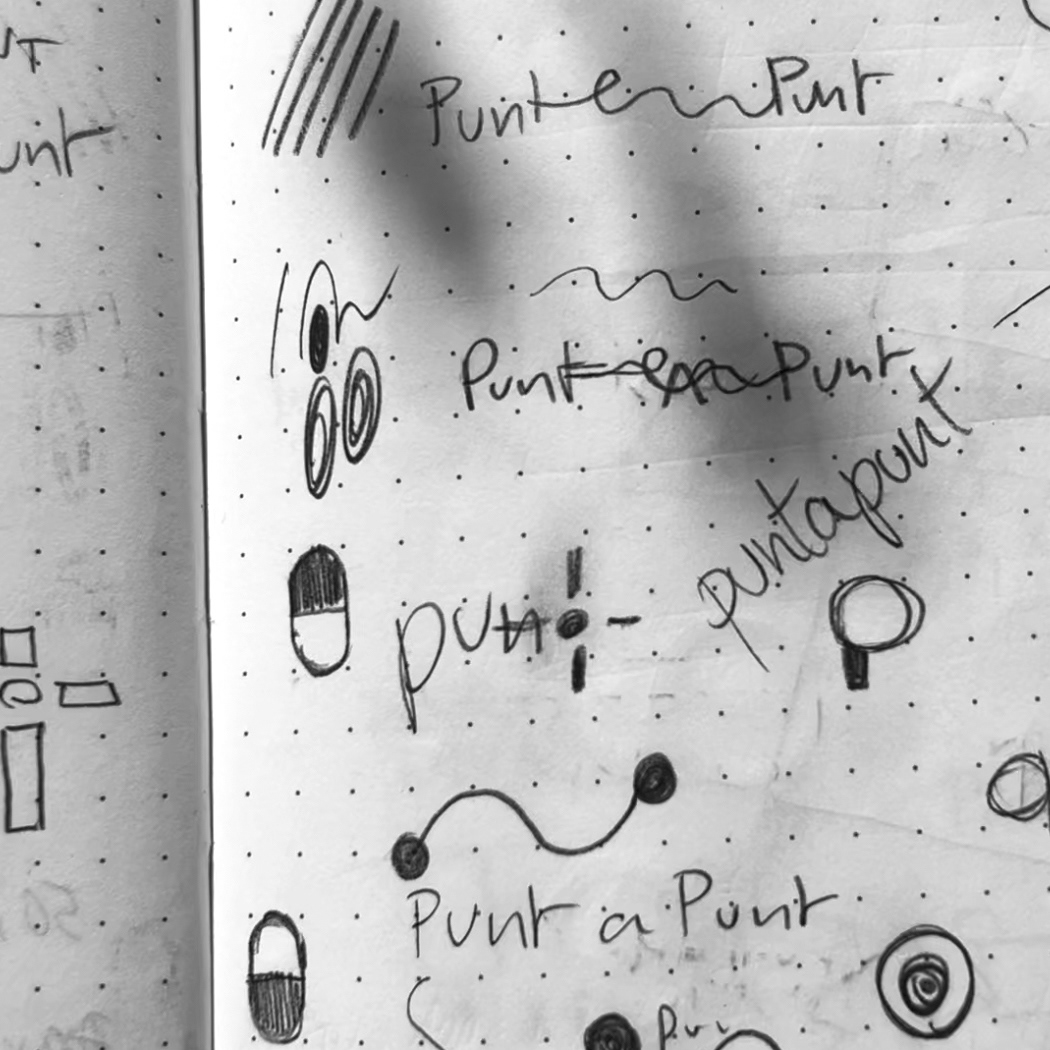 unt
Punt en Punt
Punt Punt
puntapunt
punt
Punt a Punt